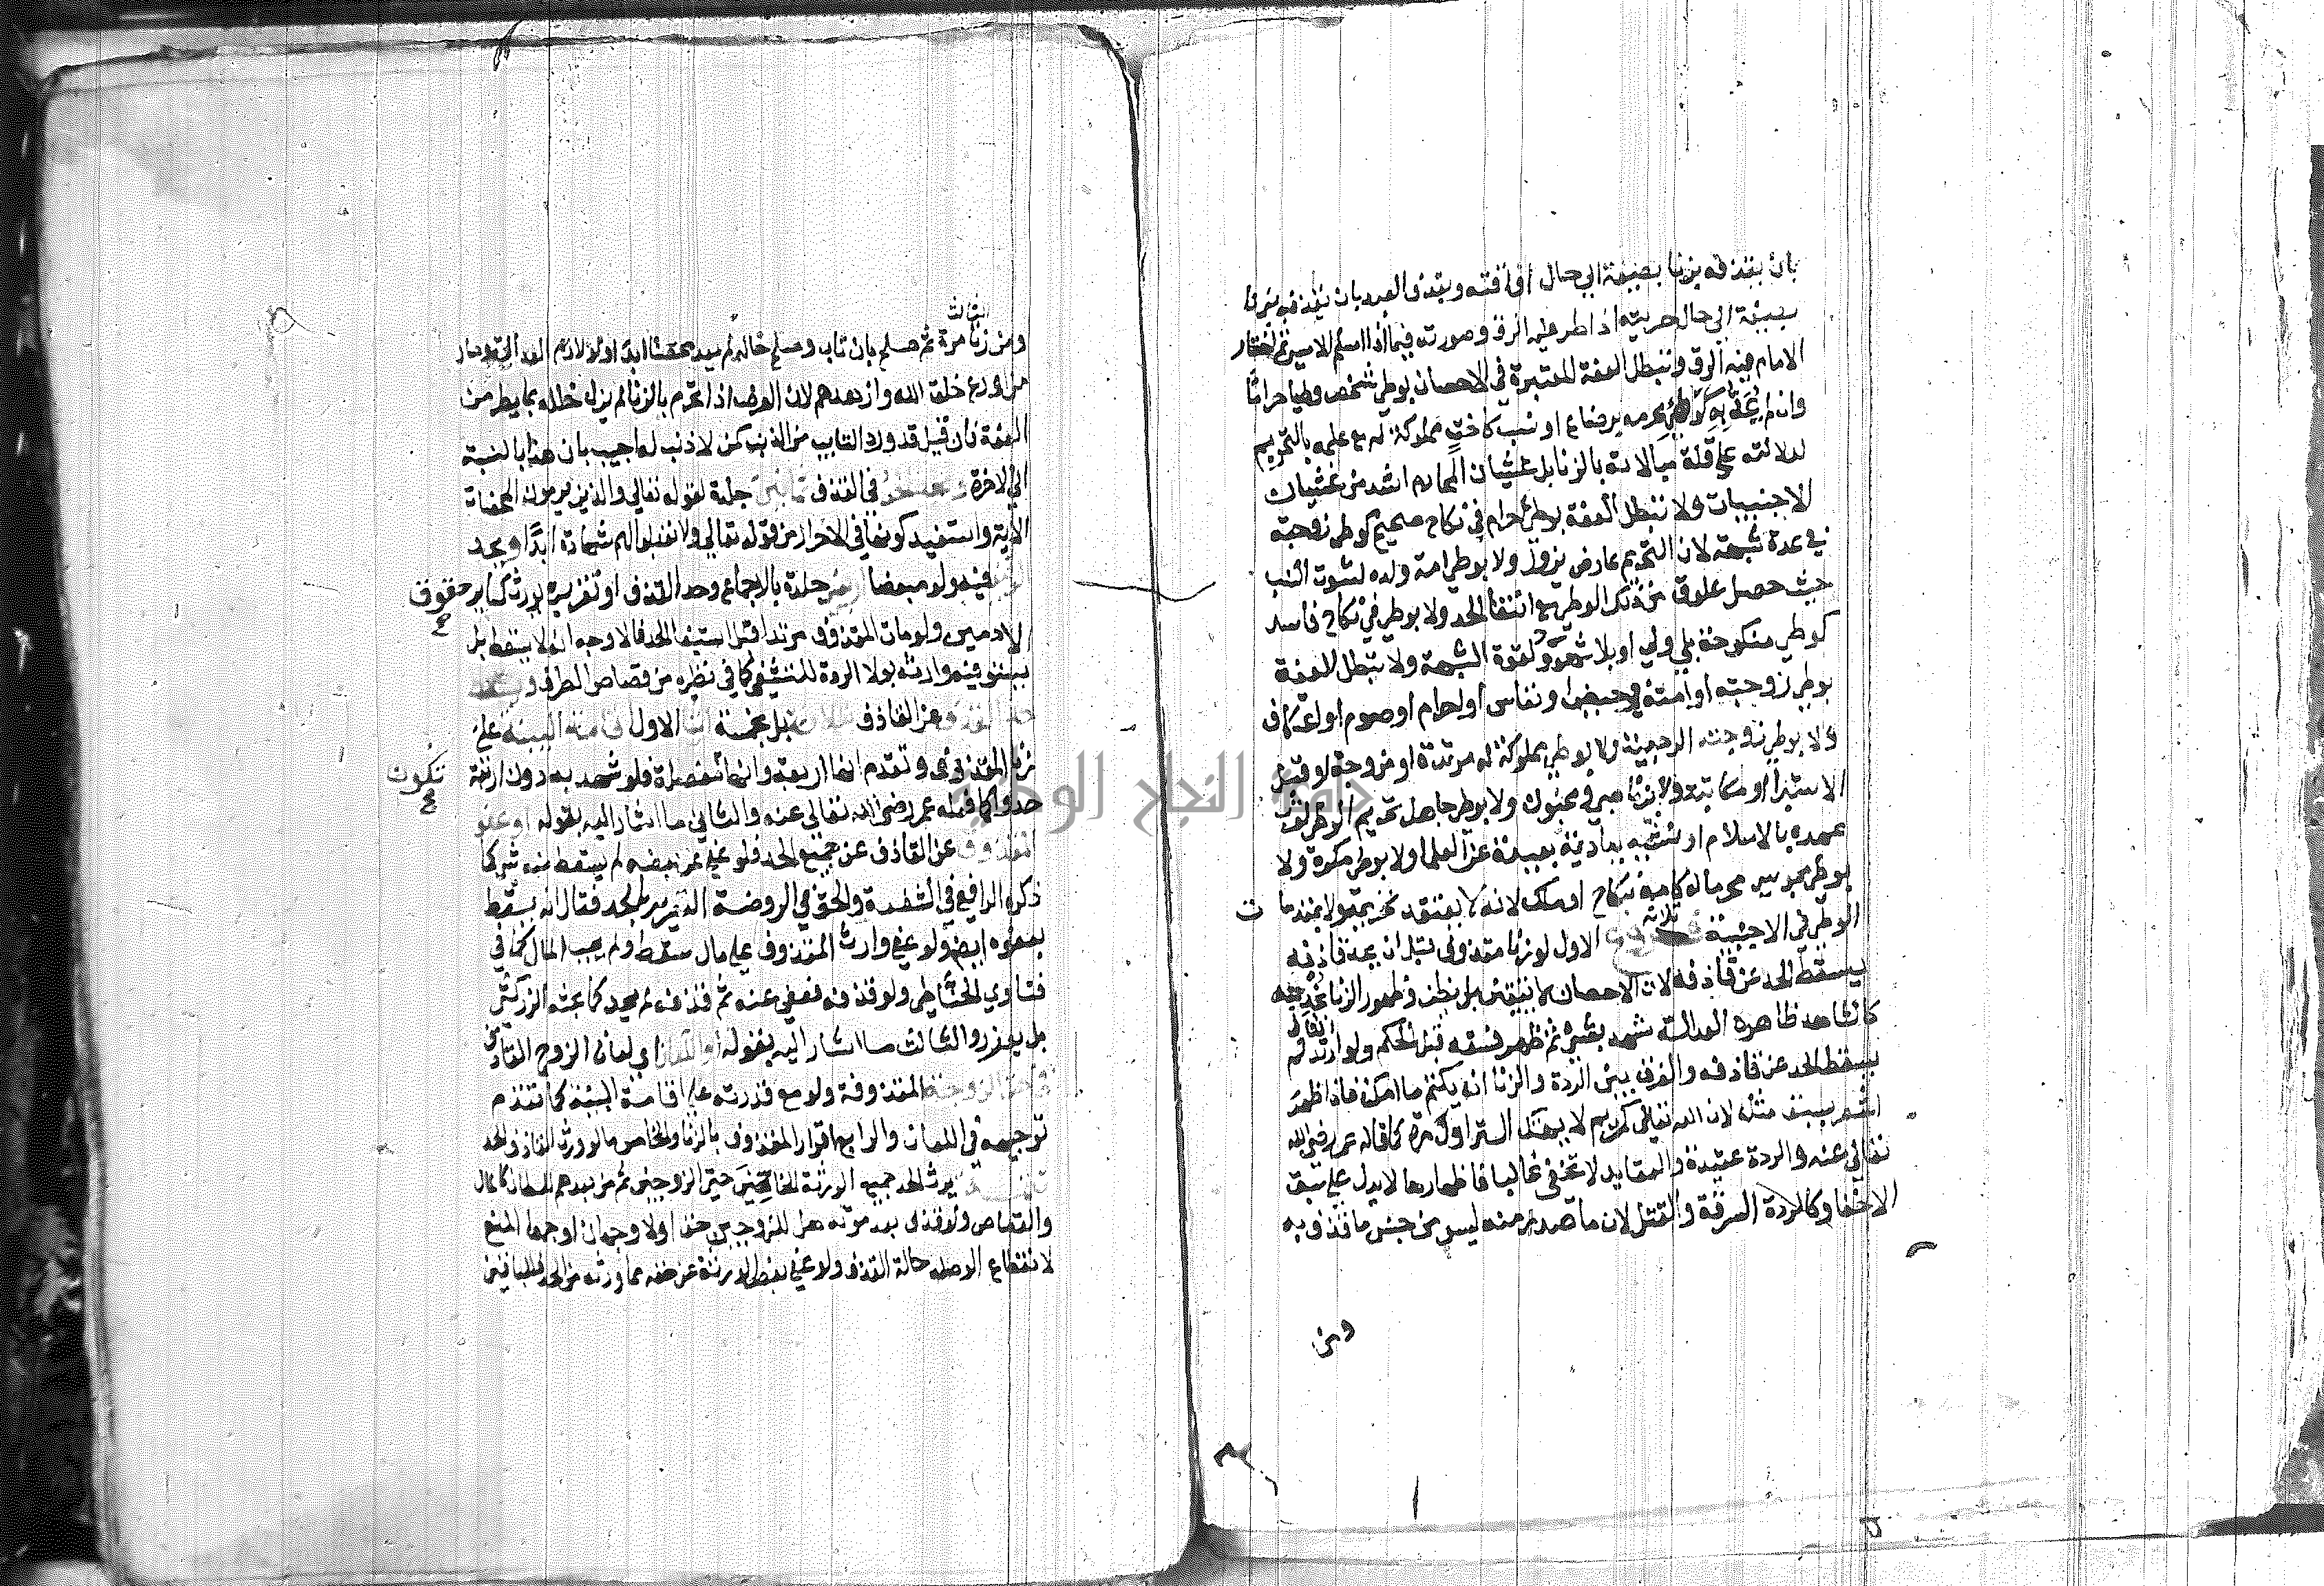 بان يقذفه بزنا يضيفه الي حال افاقته ويقذف العبد بان يقذفه بزنا
يضيفه الي حال حريته اذا طر عليه الرق وصورته فيما اذا اسلم الاسير ثم اختار
الامام فيه الرق وتبطل العفة المعتبرة في الاحصان بوطي شخص وطيا حراما
وان لم يحد به كوطي محرمه برضاع او نسب كاخت مملوكة له مع علمه بالتحريم
لدلالته علي قلة مبالاته بالزنا بل غشيان المحارم اشد من غشيان
الاجنبيات ولا تبطل العفة بوطي حرام في نكاح صحيح كوطي زوجته
في عدة شبهة لان التحريم عارض يزول ولا بوطي امة ولده لثبوت النسب
حيث حصل علوق من ذلك الوطي مع انتفا الحد ولا بوطي في نكاح فاسد
كوطي منكوحة بلي ولي او بلا شهود لقوة الشبهة ولا تبطل العفة
بوطي زوجته او امته في حيض او نفاس او احرام او صوم او اعتكاف
ولا بوطي زوجته الرجعية ولا بوطي مملوكة له مرتدة او مزوجة او قبل
الاستبرا او مكاتبة ولا بزنا صبي ومجنون ولا بوطي جاهل تحريم الوطي لقرب
عهده بالاسلام او نشئه ببادية بعيدة عن العلما ولا بوطي مكره ولا
بوطي مجوسي محرما له كامه بنكاح او ملك لانه لا يعتقد تحريمه ولا بمقدما
ت
الوطي في الاجنبية ثلاثة الاول لو زنا مقذوف قبل ان يحد قاذفه
يسقط الحد عن قاذفه لان الاحصان لا يتيقن بل يظن وظهور الزنا يخدشه
كالشاهد ظاهره العدالة شهد بشي ثم ظهر فسقه قبل الحكم ولو ارتد لم
يسقط الحد عن قاذفه والفرق بين الردة والزنا انه يكتم ما امكن فاذا ظهر
اشعر بسبق مثله لان الله تعالي كريم لا يهتك الستر اول مرة كما قاله عمر رضي الله
تعالي عنه والردة عقيدة والعقايد لا تخفي غالبا فاظهارها لا يدل علي سبق
الاخفا وكالردة السرقة والقتل لان ما صدر منه ليس من جنس ما قذف به
ومن
الثالث
ومن زنا مرة ثم صلح بان تاب وصلح حاله لم يعد محصنا ابدا ولو لازم العدالة وصار
من اورع خلق الله وازهدهم لان العرض اذا انخرم بالزنا لم يزل خلله بما يطر من
العفة فان قيل قد ورد التايب من الذنب كمن لا ذنب له اجيب بان هذا بالنسبة
الي الاخرة ويحد الحر في القذف ثمانين جلدة لقوله تعالي والذين يرمون المحصنات
الاية واستفيد كونها في الاحرار من قوله تعالي ولا تقبلوا لهم شهادة ابدا ويحد
فيه ولو مبعضا اربعين جلدة بالاجماع وحد القذف او تعزيره يورث كساير حقوق
الادميين ولو مات المقذوف مرتدا قبل استيفا الحد فالاوجه انه لا يسقط بل
يستوفيه وارثه لولا الردة للتشفي كما في نظيره من قصاص الطرف ويسقط
حد القذف عن القاذف بخمسة الاول اقامة البينة علي
زنا المقذوف وتقدم انها اربعة وانها تكون مفصلة فلو شهد به دون اربعة
حدوا كما فعله عمر رضي الله تعالي عنه والثاني ما اشار اليه بقوله او عفو
المقذوف عن القاذف عن جميع الحد فلو عفي عن بعضه لم يسقط منه شي كما
ذكره الرافعي في الشفعة والحق في الروضة التعزير بالحد فقال انه يسقط
بعفوه ايضا ولو عفي وارث المقذوف علي مال سقط ولم يجب المال كما في
فتاوي الحناطي ولو قذفه فعفي عنه ثم قذفه لم يحد كما بحثه الزركشي
بل يعزر والثالث ما اشار اليه بقوله او اللعان اي لعان الزوج القاذف
في حق الزوجة المقذوفة ولو مع قدرته علي اقامة البينة كما تقدم
توجيهه في اللعان والرابع اقرار المقذوف بالزنا والخامس ما لو ورث القاذف الحد
يرث الحد جميع الورثة الخاصين حتي الزوجين ثم من بعدهم السلطان كالمال
والقصاص ولو قذف بعد موته هل للزوجين حق او لا وجهان اوجهما المنع
لانقطاع الوصلة حالة القذف ولو عفي بعض الورثة عن حقه مما ورثه من الحد فللباقين